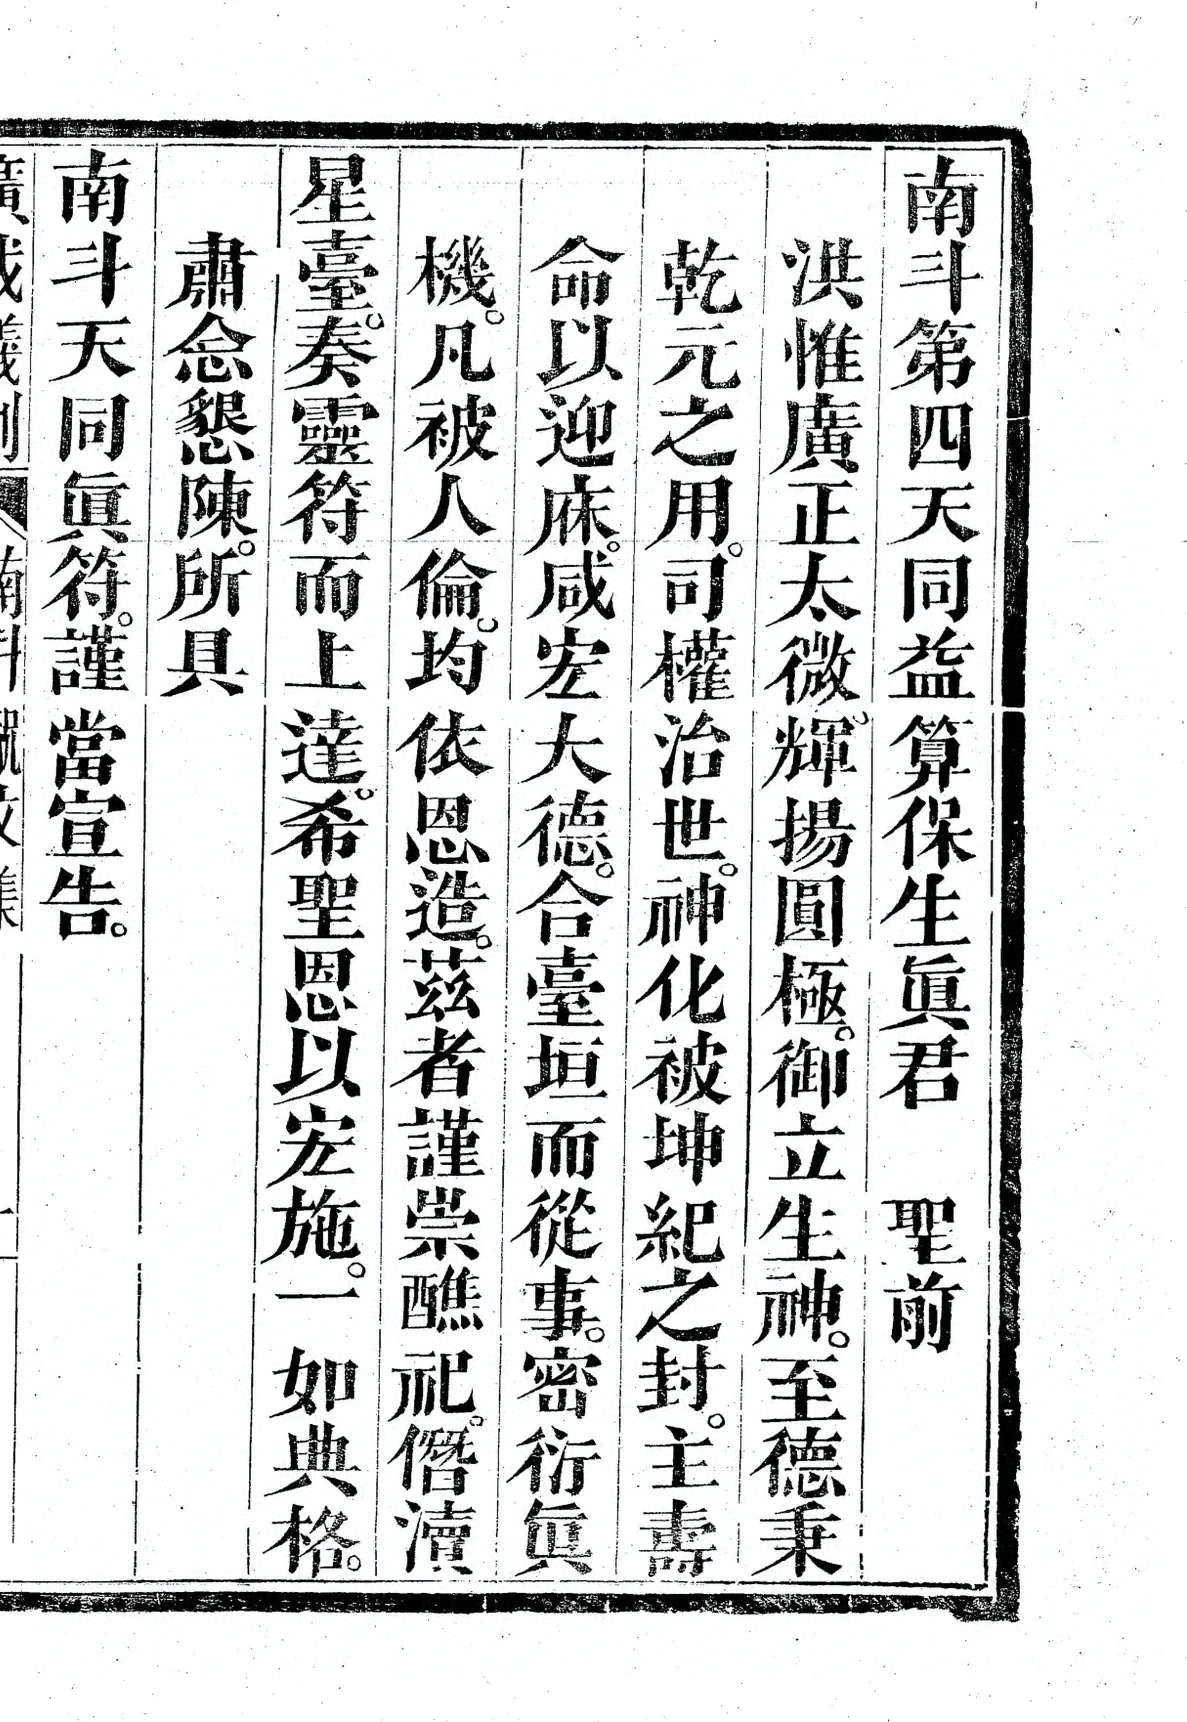 南斗第四天同益算保生眞君　聖前
洪惟廣正太微。輝揚圓極。御立生神。至德秉
乾元之用。司權治世。神化被坤紀之封。主壽
命以迎庥。咸宏大德。合臺垣而從事。密衍眞
機。凡被人倫。均依恩造。茲者謹崇醮祀。僭瀆
星臺。奏靈符而上達。希聖恩以宏施。一如典格。
肅念懇陳。所具
南斗天同眞符。謹當宣告。
廣成儀制　南斗